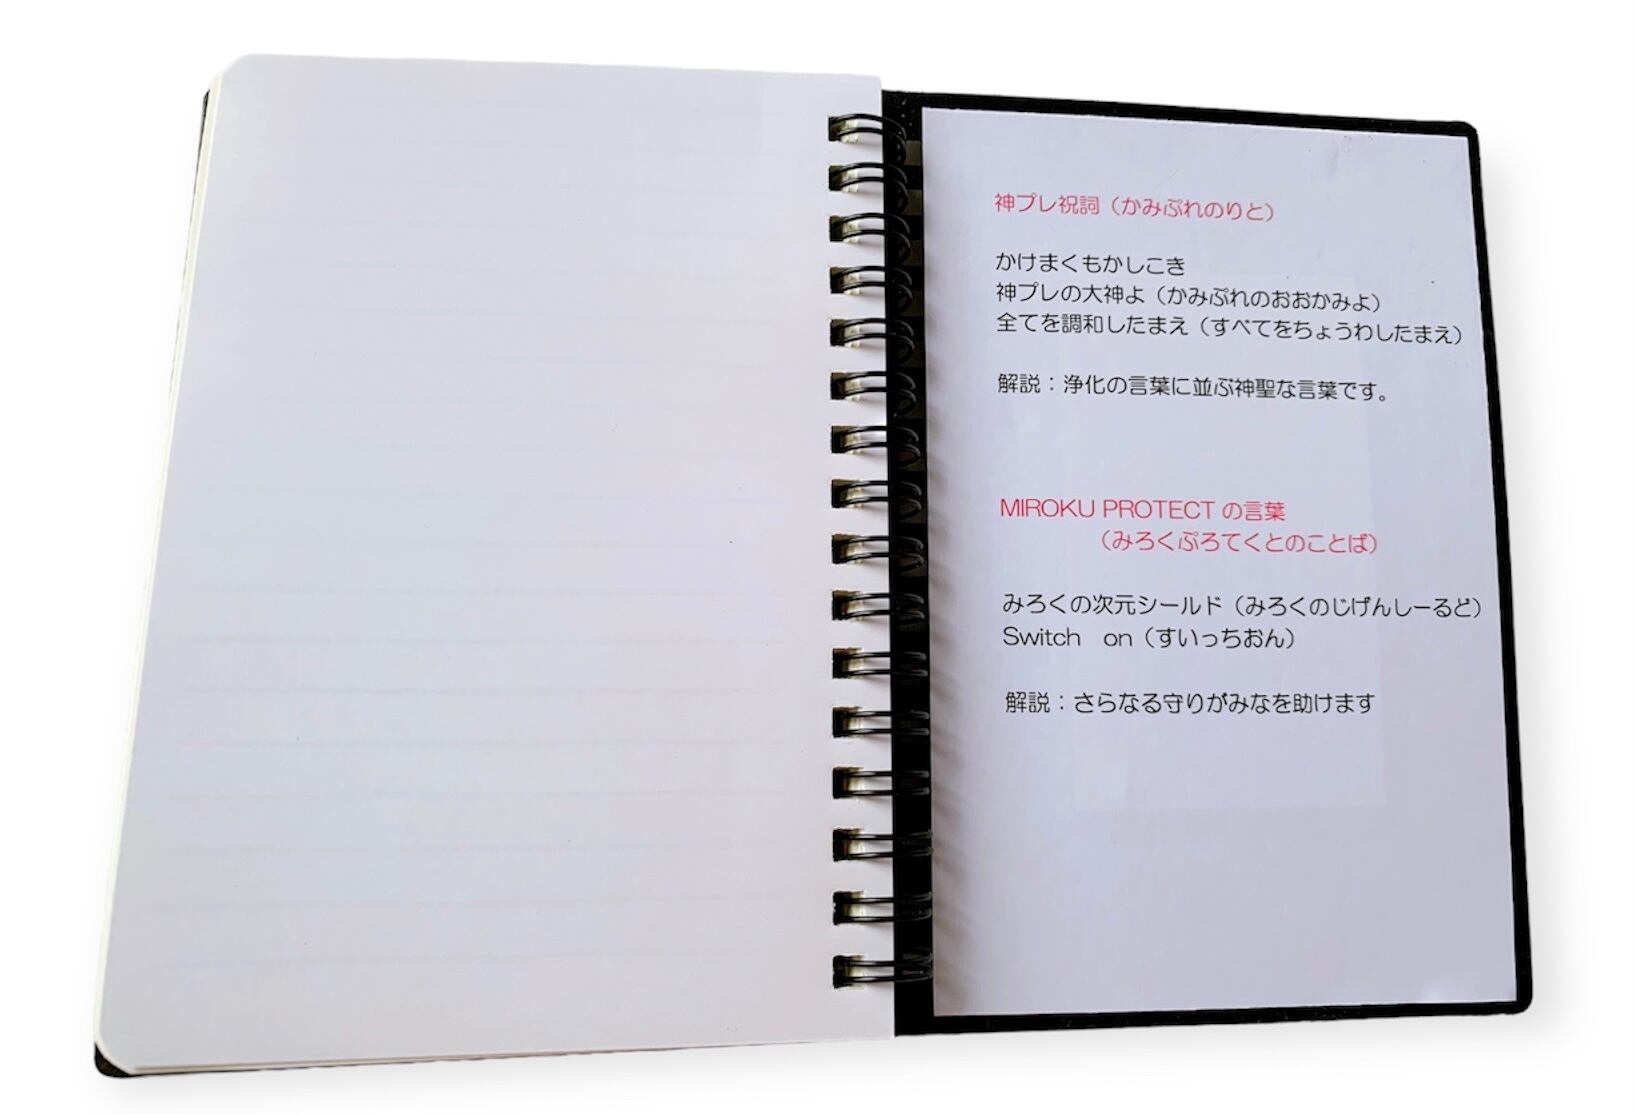 神プレ祝詞（かみぷれのりと）
かけまくもかしこき
神プレの大神よ（かみぷれのおおかみよ）
全てを調和したまえ（すべてをちょうわしたまえ）
解説：浄化の言葉に並ぶ神聖な言葉です。
MIROKU PROTECT の言葉
（みろくぷろてくとのことば）
みろくの次元シールド（みろくのじげんしーるど）
Switch　on（すいっちおん）
解説：さらなる守りがみなを助けます